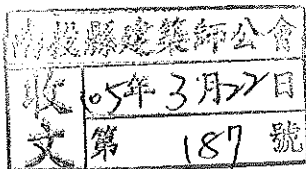 南投縣建築師公會
收文
105年3月22日
第 187 號